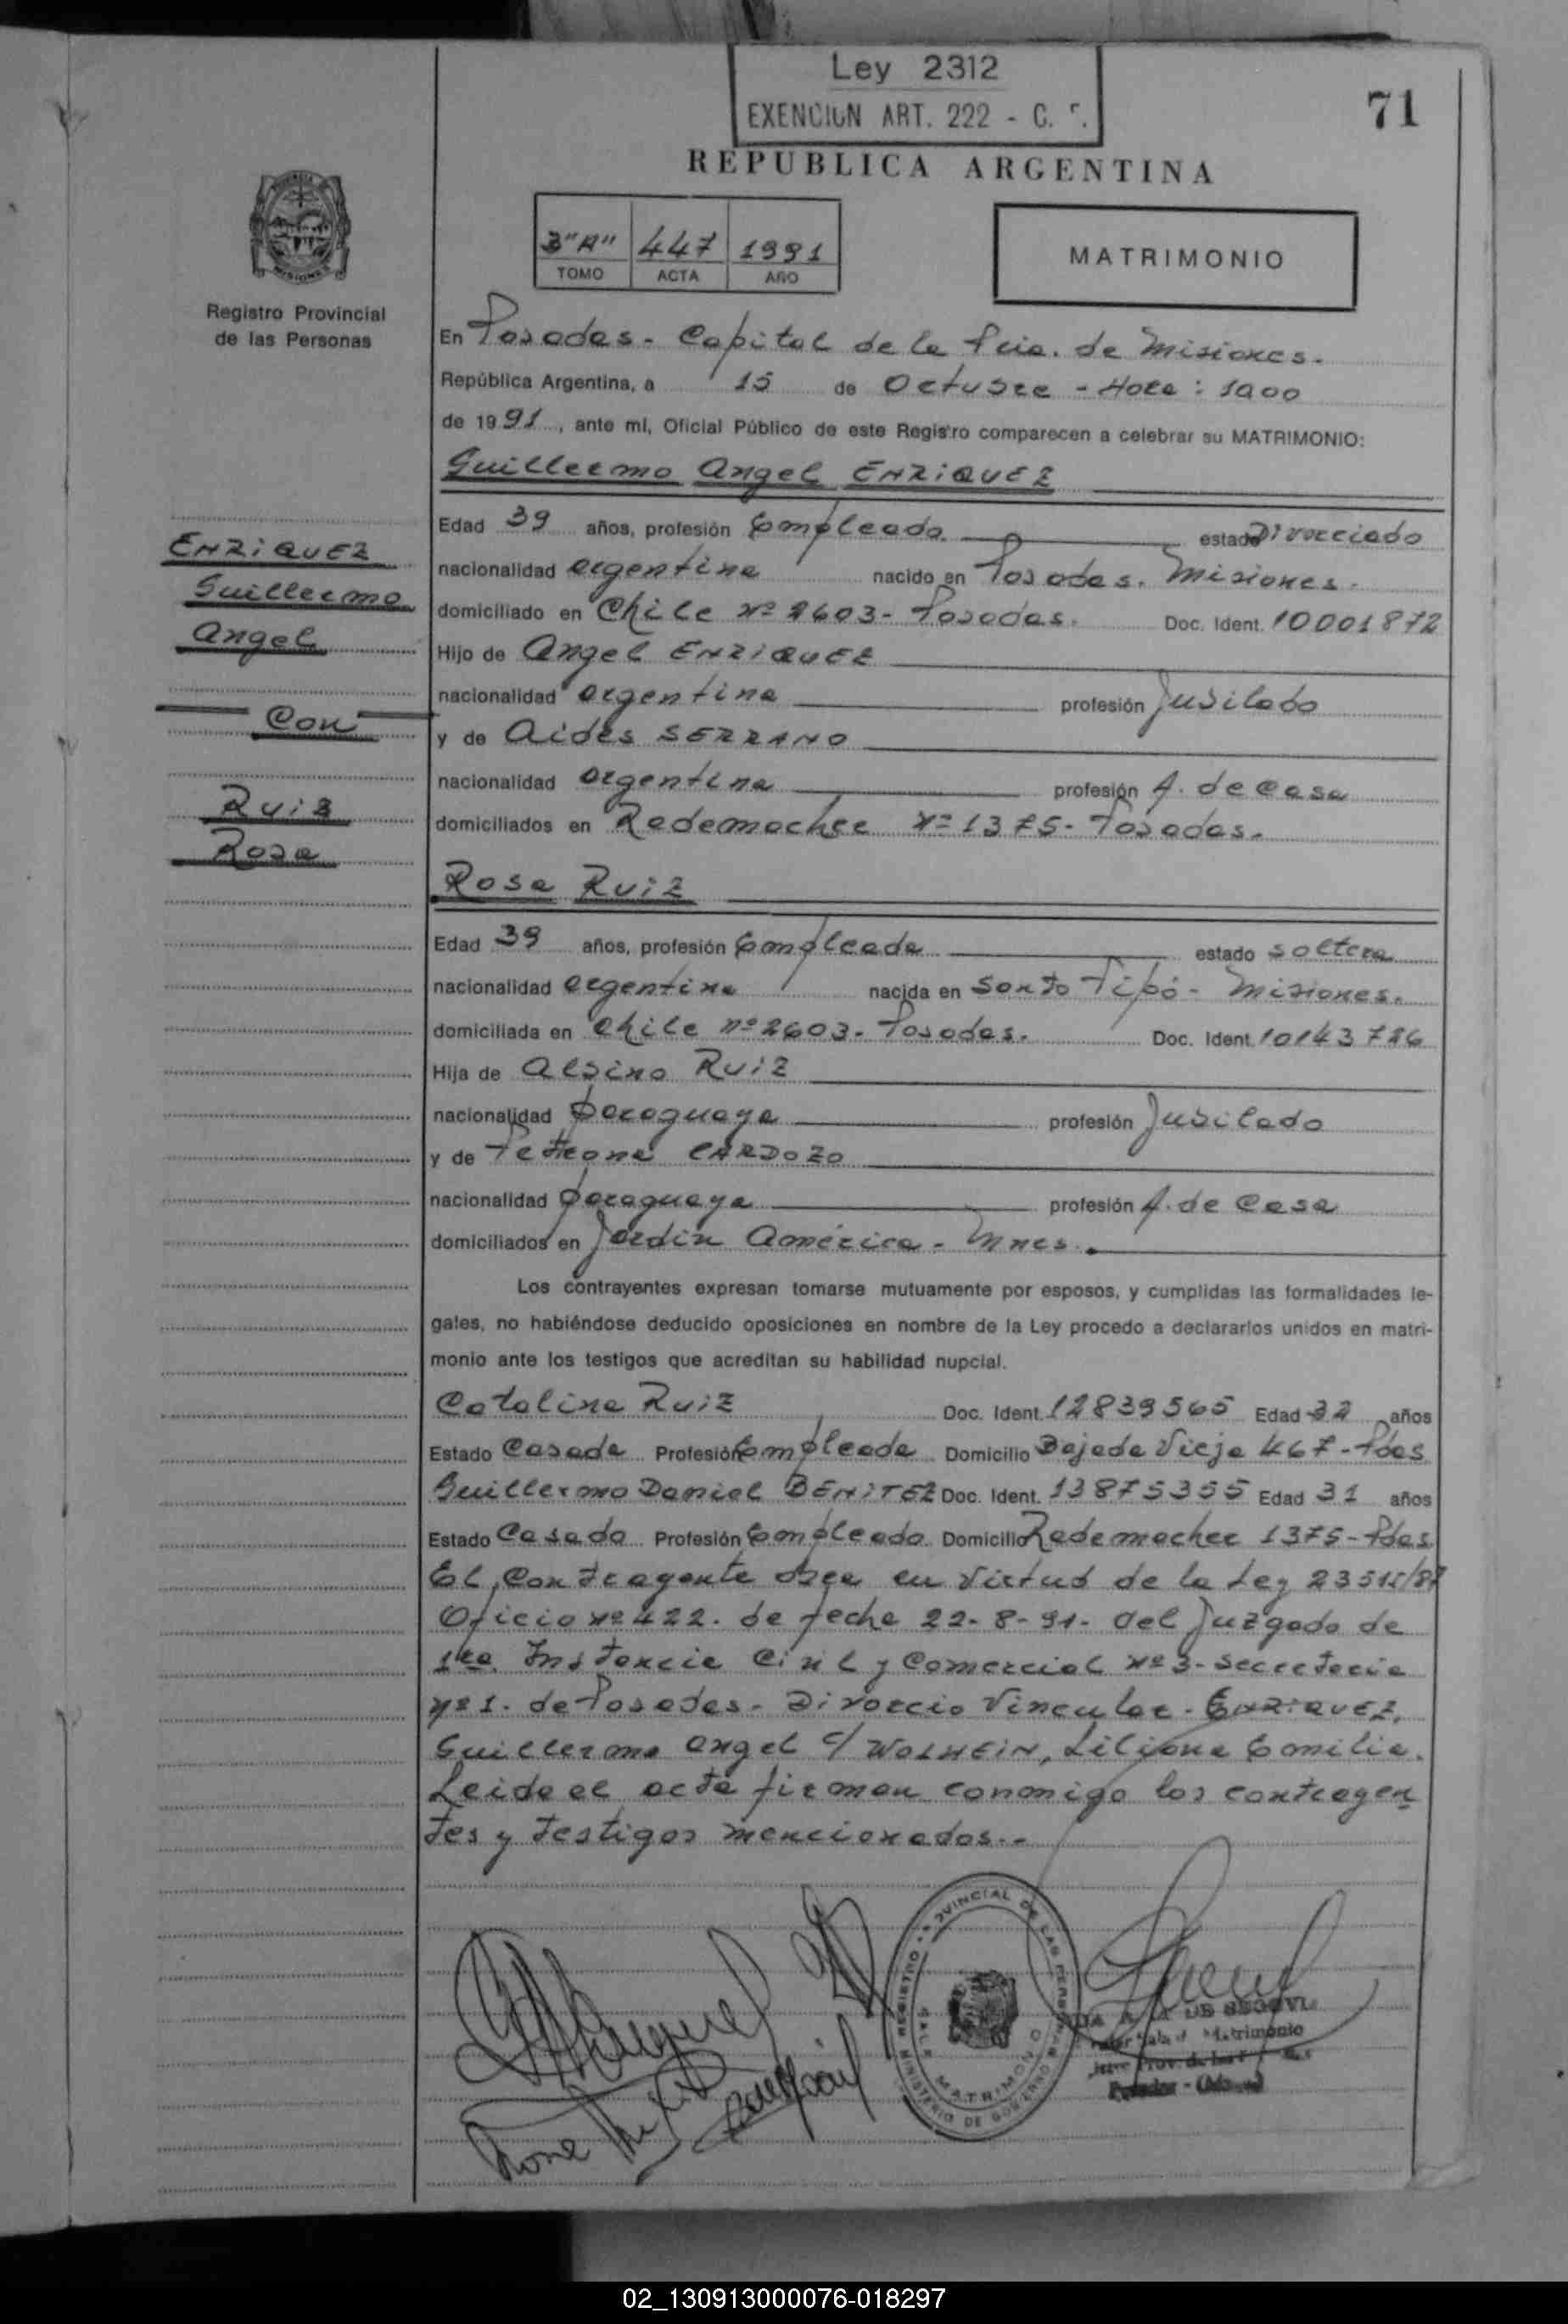 Ley 2312
EXENCION ART. 222 - C.
71
REPUBLICA ARGENTINA
3"A" 447 1991
TOMO ACTA AÑO
MATRIMONIO
Registro Provincial
de las Personas
En Posadas - Capital de la Pcia. de Misiones.
República Argentina, a 15 de Octubre - Hora: 1000
de 1991, ante mí, Oficial Público de este Registro comparecen a celebrar su MATRIMONIO:
Guillermo Angel ENRIQUEZ
Edad 39 años, profesión Empleado estado Divorciado
nacionalidad argentina nacido en Posadas. Misiones.
domiciliado en Chile Nº 2603 - Posadas. Doc. Ident. 10001872
Hijo de Angel ENRIQUEZ
nacionalidad argentina profesión Jubilado
y de Aides SERRANO
nacionalidad argentina profesión A. de Casa
domiciliados en Rademacher Nº 1375 - Posadas.
ENRIQUEZ
Guillermo
Angel
Con
Ruiz
Rosa
Rosa Ruiz
Edad 39 años, profesión Empleada estado soltera
nacionalidad argentina nacida en Santo Pipó - Misiones.
domiciliada en Chile nº 2603 - Posadas. Doc. Ident. 10143726
Hija de Albino Ruiz
nacionalidad paraguaya profesión Jubilado
y de CARDOZO
nacionalidad paraguaya profesión A. de Casa
domiciliados en Jardín América - Mnes.
Los contrayentes expresan tomarse mutuamente por esposos, y cumplidas las formalidades le-
gales, no habiéndose deducido oposiciones en nombre de la Ley procedo a declararlos unidos en matri-
monio ante los testigos que acreditan su habilidad nupcial.
Catalina Ruiz Doc. Ident. 12839565 Edad 32 años
Estado Casada Profesión Empleada Domicilio Bajada Vieja 467 - Pdas
Guillermo Daniel BENITEZ Doc. Ident. 13875355 Edad 31 años
Estado Casado Profesión Empleado Domicilio Rademacher 1375 - Pdas
El contrayente obra en virtud de la Ley 23515/87
Oficio Nº 422. de fecha 22-8-91- del Juzgado de
1ra. Instancia Civil y Comercial Nº 3 - Secretaria
Nº 1. de Posadas - Divorcio Vincular - ENRIQUEZ,
Guillermo Angel c/ WOLHEIN, Liliana Emilia.
Leida el acta firman conmigo los contrayen
tes y testigos mencionados.-
REGISTRO PROVINCIAL DE LAS PERSONAS
MATRIMONIO
MINISTERIO DE GOBIERNO
DE SEGOVIA
Matrimonio
02_130913000076-018297